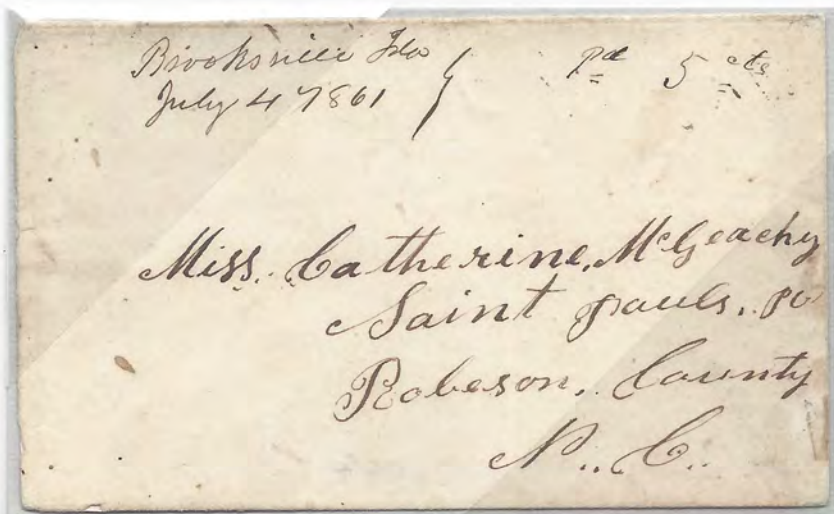 Brooksville Fla
July 4 1861
pd 5 cts
Miss. Catherine, McGeachy
Saint pauls, po
Robeson, County
N.. C..